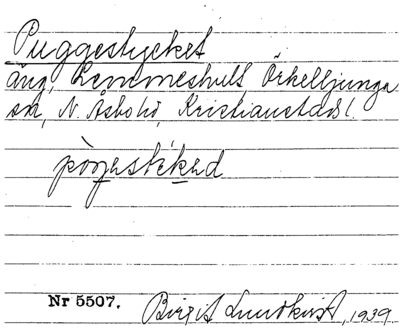 Puggestycket
äng, Römmeshult, Örkelljunga
sn, N. Åsbo hd, Kristianstads l.
Nr 5507. Birgit Lundkvist, 1939